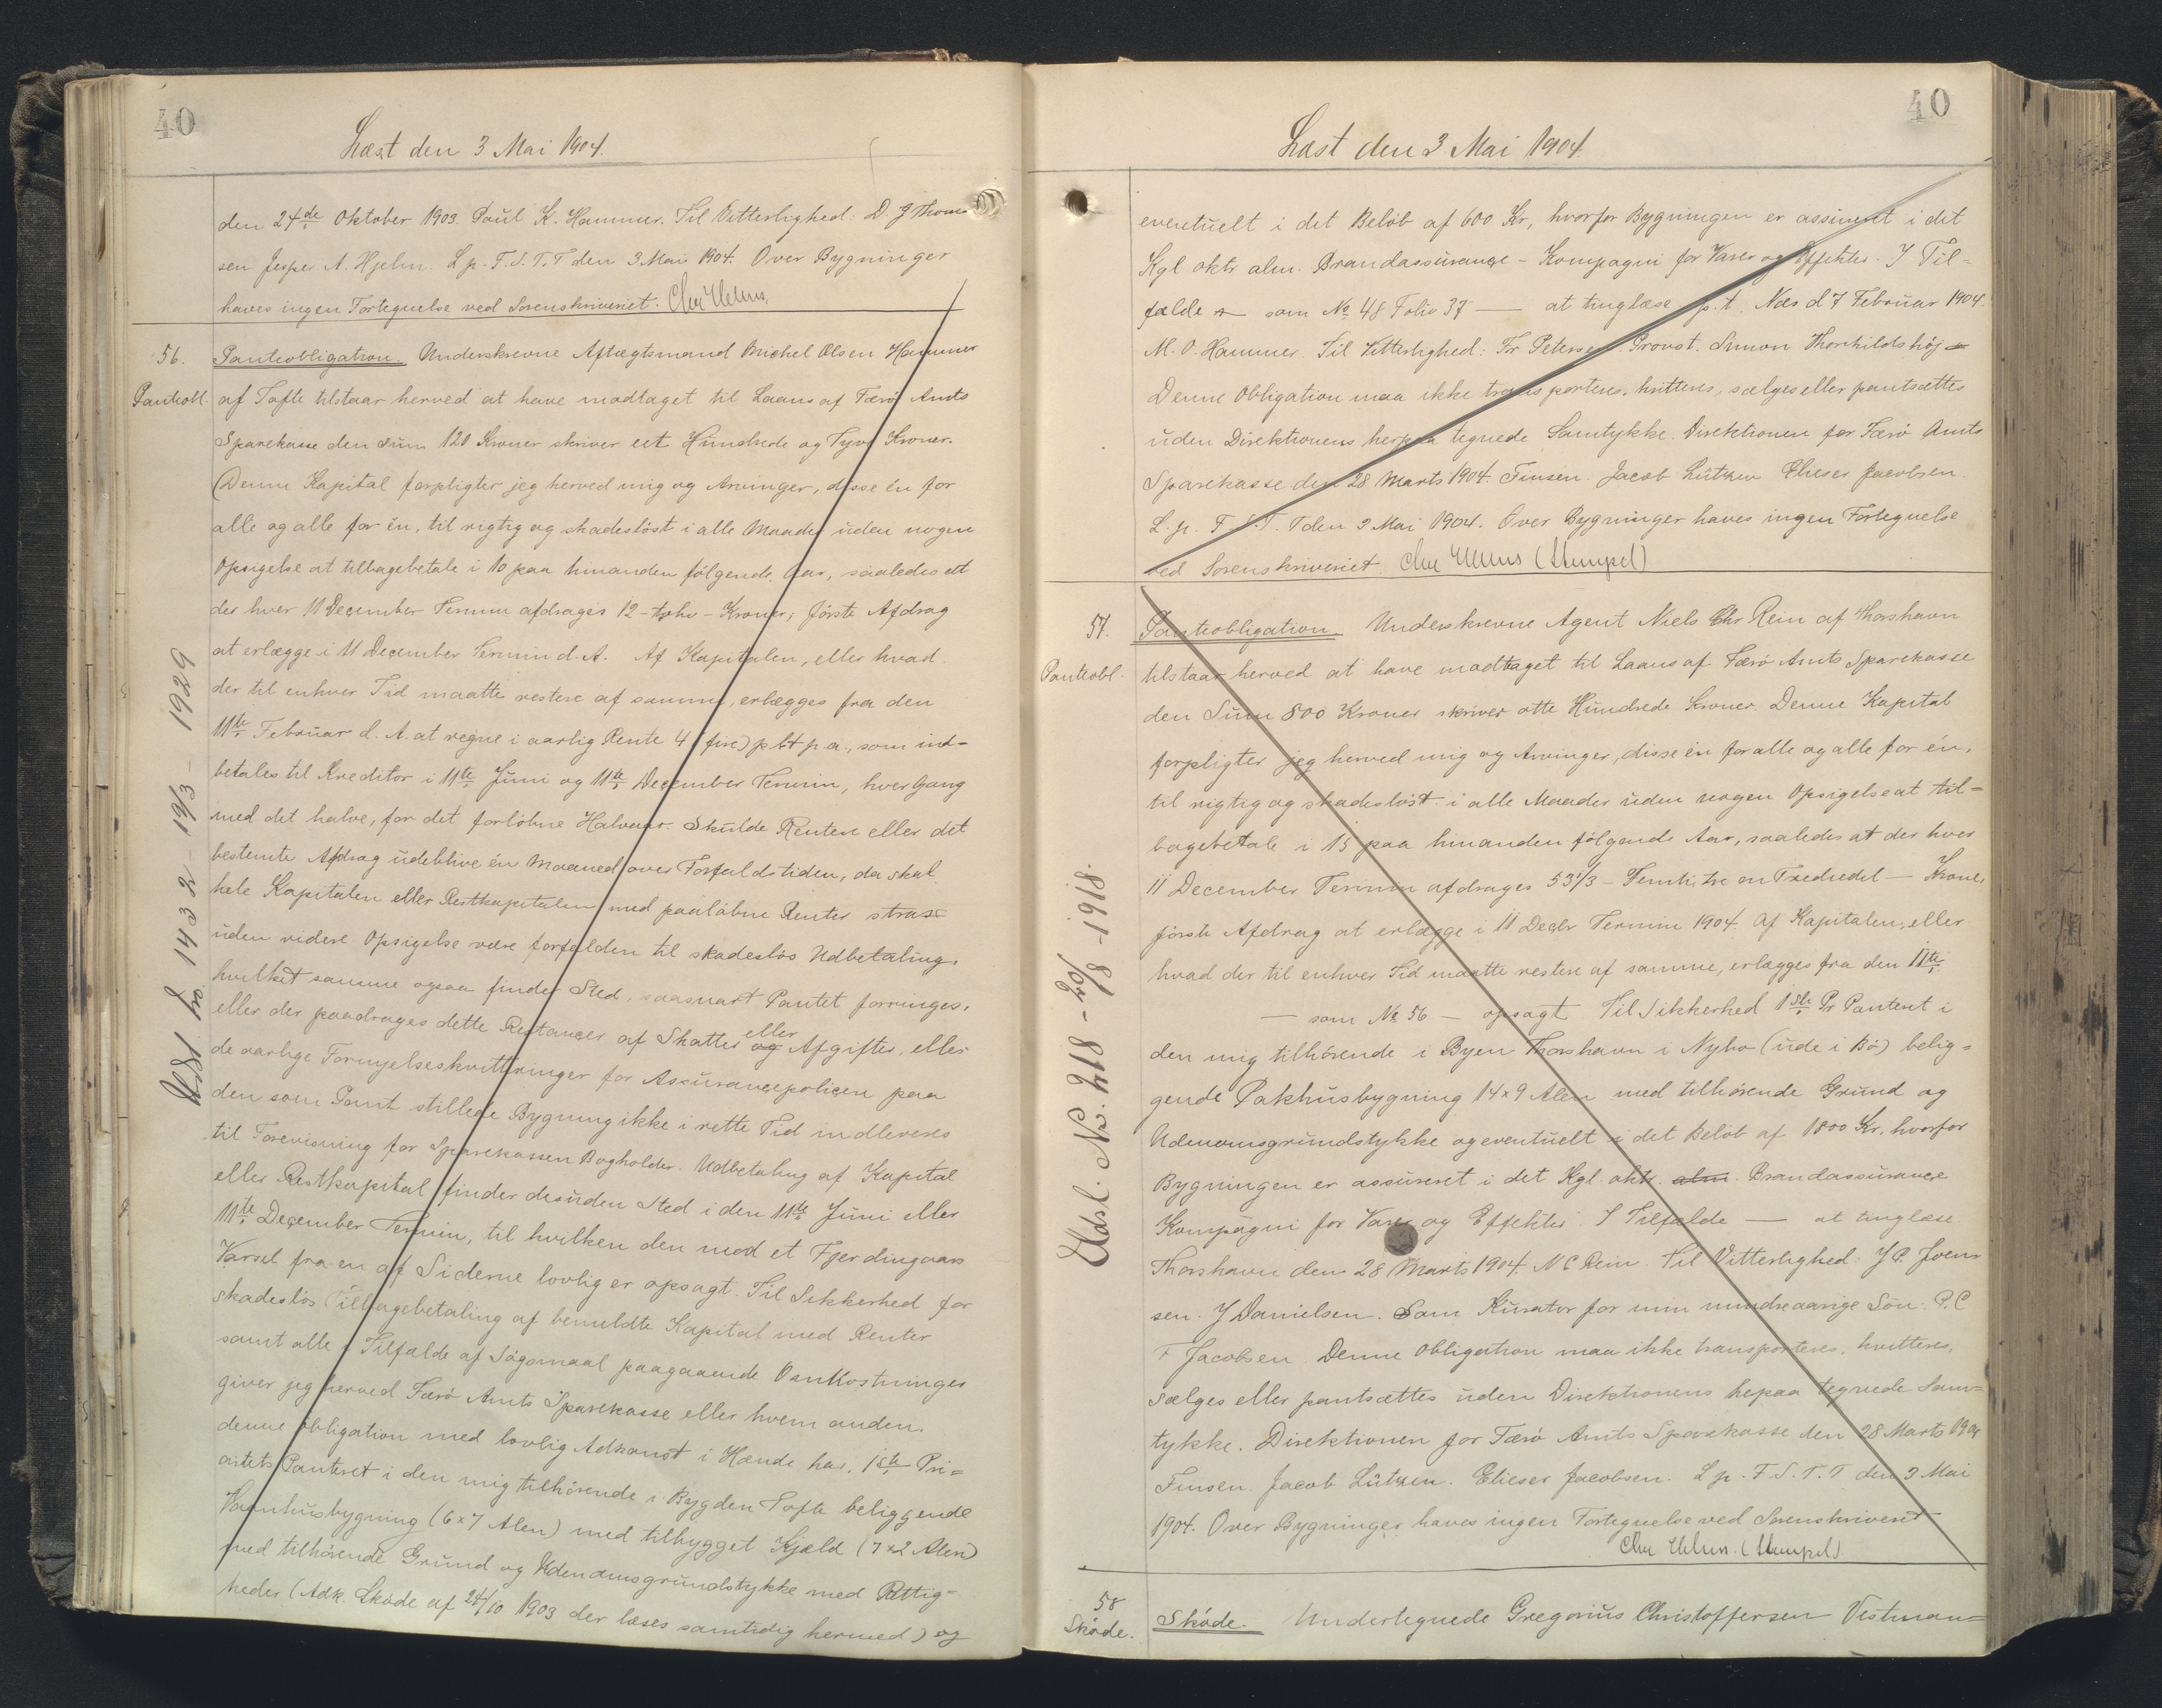 40
Læst den 3 Mai 1904.
den 24de Oktober 1903. Paul K. Hammer. Til Vitterlighed: D. J Thom-
sen Jesper A. Hjelm. L p. F. S. T. T den 3 Mai 1904. Over Bygninger
haves ingen Fortegnelse ved Sorenskriveriet.
56. Panteobligation. Underskrevne Aftægtsmand Michel Olsen Hammer
Panteobl. af Tofte tilstaar herved at have modtaget til Laans af Færø Amts
Sparekasse den Sum 120 Kroner skriver eet Hundrede og Tyve Kroner.
Denne Kapital forpligter jeg herved mig og Arvinger, disse én for
alle og alle for én, til rigtig og skadesløst i alle Maader uden nogen
Opsigelse at tilbagebetale i 10 paa hinanden følgende Aar, saaledes at
der hver 11 December Termin afdrages 12 - tolv - Kroner, første Afdrag
at erlægge i 11 December Termin d. A. Af Kapitalen, eller hvad
der til enhver Tid maatte restere af samme, erlægges fra den
11te Februar d. A. at regne i aarlig Rente 4 (fire) pCt p. a., som ind-
betales til Kreditor i 11te Juni og 11te December Termin, hver Gang
med det halve, for det forløbne Halvaar. Skulde Rentere eller det
bestemte Afdrag udeblive én Maaned over Forfaldstiden, da skal
hele Kapitalen eller Restkapitalen med paaløbne Renter strax
uden videre Opsigelse være forfalden til skadesløs Udbetaling,
hvilket samme ogsaa finder Sted, saasnart Pantet forringes,
eller der paadrages dette Restancer af Skatter og eller Afgifter, eller
de aarlige Fornyelseskvitteringer for Assurancepolicen paa
den som Pant stillede Bygning ikke i rette Tid indleveres
til Forevisning for Sparekassen Bogholder. Udbetaling af Kapital
eller Restkapital finder desuden Sted i den 11te Juni eller
11te December Termin, til hvilken den med et Fjerdingaars
Varsel fra en af Siderne lovlig er opsagt. Til Sikkerhed for
skadesløs Tilbagebetaling af bemeldte Kapital med Renter
samt alle i Tilfælde af Søgsmaal paagaaende Omkostninger
giver jeg herved Færø Amts Sparekasse eller hvem anden,
denne Obligation med lovlig Adkomst i Hænde har, 1ste Pri-
oritets Panteret i den mig tilhørende i Bygden Tofte beliggende
Vaanhusbygning (6 x 7 Alen) med tilbygget Kjæld (7 x 2 Alen)
med tilhørende Grund og Udenomsgrundstykke med Rettig-
heder (Adk. Skøde af 24/10 1903 der læses samtidig hermed) og
Udsl. fo 1432 - 19/3 - 1929
40
Læst den 3 Mai 1904.
eventuelt i det Beløb af 600 Kr, hvorfor Bygningen er assureret i det
Kgl oktr alm. Brandassurance - Kompagni for Varer og Effekter. I Til-
fælde som No 48 Folio 37 — at tinglæse p. t. Næs d 7 Februar 1904.
M. O. Hammer. Til Vitterlighed: Fr Petersen. Provst. Simon Thorkildshøj
Denne Obligation maa ikke transporteres, kvitteres, sælges eller pantsættes
uden Direktionens herpaa tegnede Samtykke. Direktionen for Færø Amts
Sparekasse den 28 Marts 1904. Finsen. Jacob Lützen Elieser Jacobsen.
L. p. F. S. T. T den 3 Mai 1904. Over Bygninger haves ingen Fortegnelse
ved Sorenskriveriet. (Stempel)
57. Panteobligation. Underskrevne Agent Niels Chr Rein af Thorshavn
Panteobl. tilstaar herved at have modtaget til Laans af Færø Amts Sparekasse
den Sum 800 Kroner skriver otte Hundrede Kroner. Denne Kapital
forpligter jeg herved mig og Arvinger, disse én for alle og alle for én,
til rigtig og skadesløst i alle Maader uden nogen Opsigelse at til-
bagebetale i 15 paa hinanden følgende Aar, saaledes at der hver
11 December Termin afdrages 53 1/3 - Femti, tre en Trediedel — Kroner,
første Afdrag at erlægge i 11 Decbr Termin 1904. Af Kapitalen, eller
hvad der til enhver Tid maatte restere af samme, erlægges fra den 11te
— som No 56 — opsagt. Til Sikkerhed 1ste Pr Panteret i
den mig tilhørende i Byen Thorshavn i Nyhø (ude i Bø) belig-
gende Pakhusbygning 14 x 9 Alen med tilhørende Grund og
Udenomsgrundstykke og eventuelt i det Beløb af 1800 Kr, hvorfor
Bygningen er assureret i det Kgl. oktr. alm. Brandassurance
Kompagni for Varer og Effekter. I Tilfælde — at tinglæse
Thorshavn den 28 Marts 1904. N C Rein. Til Vitterlighed: J P. Joen-
sen. J Danielsen. Som Kurator for min mindreaarige Søn: P. C
F Jacobsen. Denne Obligation maa ikke transporteres, kvitteres,
sælges eller pantsættes uden Direktionens hepaa tegnede Sam-
tykke. Direktionen for Færø Amts Sparekasse den 28 Marts 1904
Finsen. Jacob Lützen. Elieser Jacobsen. L p. F. S. T. T den 3 Mai
1904. Over Bygninger haves ingen Fortegnelse ved Sorenskriveriet
(Stempel)
Udsl. No. 218 - 20/8 - 1918.
58 Skøde. Undertegnede Gregorius Christoffersen Vestman-
Skøde.